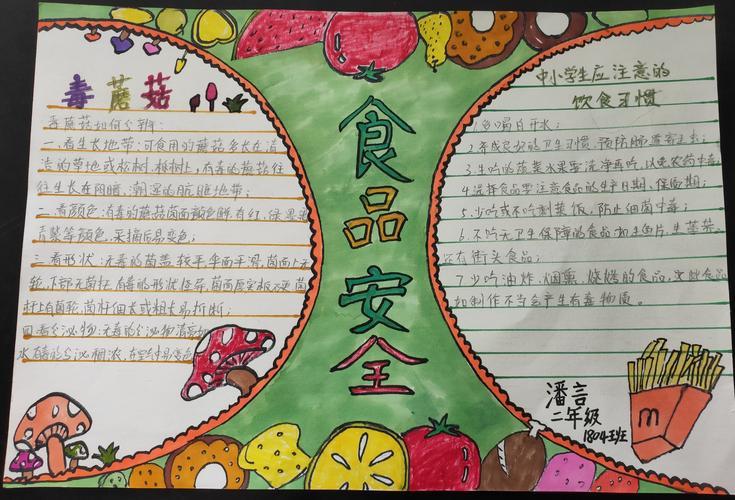 毒蘑菇
毒蘑菇如何分辨:
一.看生长地带:可食用的蘑菇多长在清
洁的草地或松树、橡树上,有毒的蘑菇往
往生长在阴暗、潮湿的肮脏地带;
二.看颜色:有毒的蘑菇菌面颜色鲜有红、绿、墨黑
青紫等颜色,采摘后易变色;
三.看形状:无毒的菌盖较平,伞面平滑,菌面上无
轮,下部无菌托,有毒的形状怪异,菌面厚实板
杆上有菌轮,菌杆细长或粗长易折断;
四.看分泌物:无毒的分泌物清亮如
水,有毒的分泌稠浓,
食品安全
中小学生应注意的
饮食习惯
喝白开水;
2.养成良好的卫生习惯,预防肠道寄生虫;
3.生吃的蔬菜水果要洗净再吃,以免农药中毒;
4.选择食品要注意食品的生产日期、保质期;
5.少吃或不吃剩菜饭,防止细菌中毒;
6.不吃无卫生保障的食品如生鱼片、生荤菜
还有街头食品;
7.少吃油炸、烟熏、烧烤的食品,这些食品
如制作不当会产生有毒物质。
潘言
二年级
1804班
m